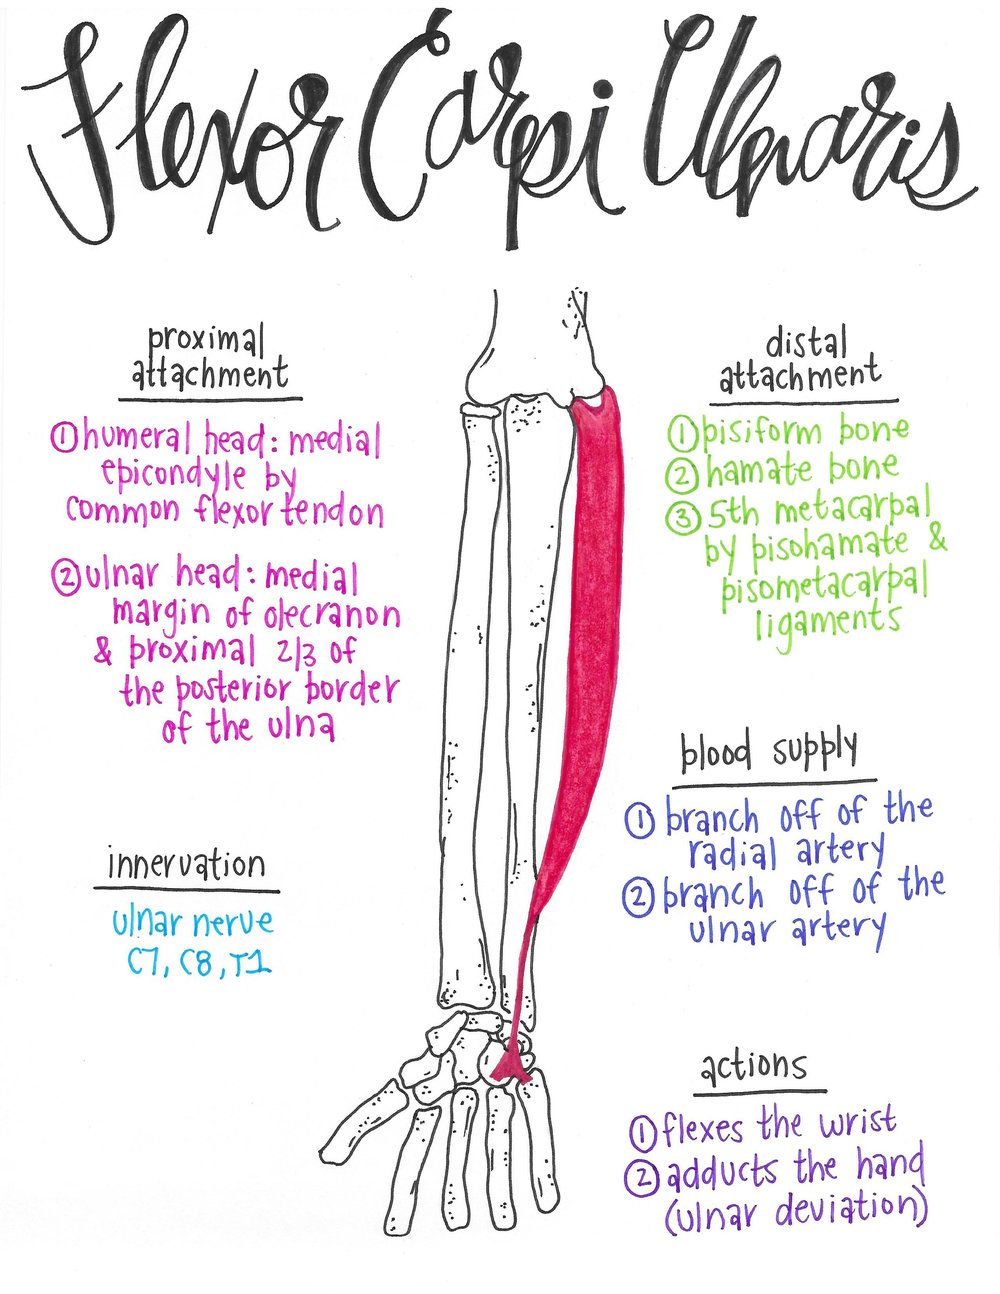 Flexor Carpi Ulnaris
proximal
attachment
① humeral head: medial
epicondyle by
common flexor tendon
② ulnar head: medial
margin of olecranon
& proximal 2/3 of
the posterior border
of the ulna
innervation
ulnar nerve
C7, C8, T1
distal
attachment
① pisiform bone
② hamate bone
③ 5th metacarpal
by pisohamate &
pisometacarpal
ligaments
blood supply
① branch off of the
radial artery
② branch off of the
ulnar artery
actions
① flexes the wrist
② adducts the hand
(ulnar deviation)